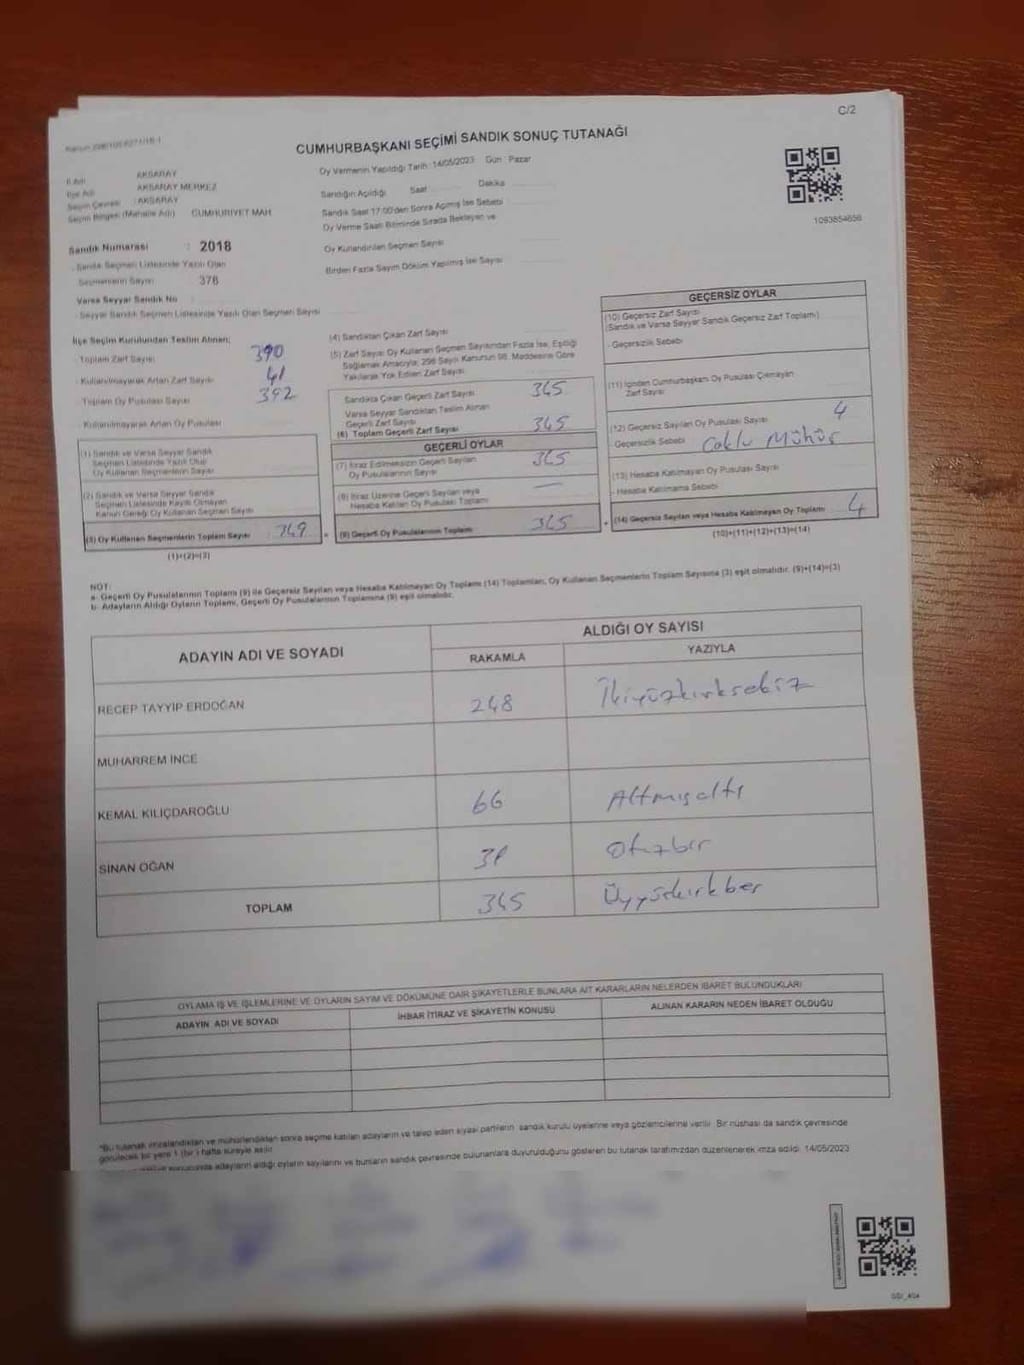 C/2
CUMHURBAŞKANI SEÇİMİ SANDIK SONUÇ TUTANAĞI
İl Adı AKSARAY
İlçe Adı AKSARAY MERKEZ
Seçim Çevresi : AKSARAY
Seçim Bölgesi (Mahalle Adı) CUMHURİYET MAH.
Oy Vermenin Yapıldığı Tarih : 14/05/2023 Gün : Pazar
Sandığın Açıldığı Saat Dakika
Sandık Saat 17:00'den Sonra Açılmış İse Sebebi
Oy Verme Saati Bitiminde Sırada Bekleyen ve
Oy Kullandırılan Seçmen Sayısı
Birden Fazla Sayım Döküm Yapılmış İse Sayısı
1093854656
Sandık Numarası : 2018
- Sandık Seçmen Listesinde Yazılı Olan
Seçmenlerin Sayısı 378
Varsa Seyyar Sandık No
- Seyyar Sandık Seçmen Listesinde Yazılı Olan Seçmen Sayısı
İlçe Seçim Kurulundan Teslim Alınan;
- Toplam Zarf Sayısı 390
- Kullanılmayarak Artan Zarf Sayısı 41
- Toplam Oy Pusulası Sayısı 392
- Kullanılmayarak Artan Oy Pusulası
(1) Sandık ve Varsa Seyyar Sandık
Seçmen Listesinde Yazılı Olup
Oy Kullanan Seçmenlerin Sayısı
(2) Sandık ve Varsa Seyyar Sandık
Seçmen Listesinde Kaydı Olmayan
Kanun Gereği Oy Kullanan Seçmen Sayısı
(3) Oy Kullanan Seçmenlerin Toplam Sayısı 349
(1)+(2)=(3)
(4) Sandıktan Çıkan Zarf Sayısı
(5) Zarf Sayısı Oy Kullanan Seçmen Sayısından Fazla İse, Eşitliği
Sağlamak Amacıyla; 298 Sayılı Kanunun 98. Maddesine Göre
Yakılarak Yok Edilen Zarf Sayısı
Sandıkta Çıkan Geçerli Zarf Sayısı 345
Varsa Seyyar Sandıktan Teslim Alınan
Geçerli Zarf Sayısı
(6) Toplam Geçerli Zarf Sayısı 345
GEÇERLİ OYLAR
(7) İtiraz Edilmeksizin Geçerli Sayılan
Oy Pusulalarının Sayısı 345
(8) İtiraz Üzerine Geçerli Sayılan veya
Hesaba Katılan Oy Pusulası Toplamı —
(9) Geçerli Oy Pusulalarının Toplamı 345
GEÇERSİZ OYLAR
(10) Geçersiz Zarf Sayısı
(Sandık ve Varsa Seyyar Sandık Geçersiz Zarf Toplamı)
- Geçersizlik Sebebi
(11) İçinden Cumhurbaşkanı Oy Pusulası Çıkmayan
Zarf Sayısı
(12) Geçersiz Sayılan Oy Pusulası Sayısı 4
- Geçersizlik Sebebi Çoklu Mühür
(13) Hesaba Katılmayan Oy Pusulası Sayısı
- Hesaba Katılmama Sebebi
(14) Geçersiz Sayılan veya Hesaba Katılmayan Oy Toplamı 4
(10)+(11)+(12)+(13)=(14)
NOT:
a- Geçerli Oy Pusulalarının Toplamı (9) ile Geçersiz Sayılan veya Hesaba Katılmayan Oy Toplamı (14) Toplamları, Oy Kullanan Seçmenlerin Toplam Sayısına (3) eşit olmalıdır. (9)+(14)=(3)
b- Adayların Aldığı Oyların Toplamı, Geçerli Oy Pusulalarının Toplamına (9) eşit olmalıdır.
ADAYIN ADI VE SOYADI ALDIĞI OY SAYISI
RAKAMLA YAZIYLA
RECEP TAYYİP ERDOĞAN 248 İkiyüzkırksekiz
MUHARREM İNCE
KEMAL KILIÇDAROĞLU 66 Altmışaltı
SİNAN OĞAN 31 Otuzbir
TOPLAM 345 Üçyüzkırkbeş
OYLAMA İŞ VE İŞLEMLERİNE VE OYLARIN SAYIM VE DÖKÜMÜNE DAİR ŞİKAYETLERLE BUNLARA AİT KARARLARIN NELERDEN İBARET BULUNDUKLARI
ADAYIN ADI VE SOYADI İHBAR İTİRAZ VE ŞİKAYETİN KONUSU ALINAN KARARIN NEDEN İBARET OLDUĞU
*Bu tutanak imzalandıktan ve mühürlendikten sonra seçime katılan adayların ve talep eden siyasi partilerin sandık kurulu üyelerine veya gözlemcilerine verilir. Bir nüshası da sandık çevresinde
görülecek bir yere 1 (bir) hafta süreyle asılır.
adayların aldığı oyların sayılarını ve bunların sandık çevresinde bulunanlara duyurulduğunu gösteren bu tutanak tarafımızdan düzenlenerek imza edildi. 14/05/2023